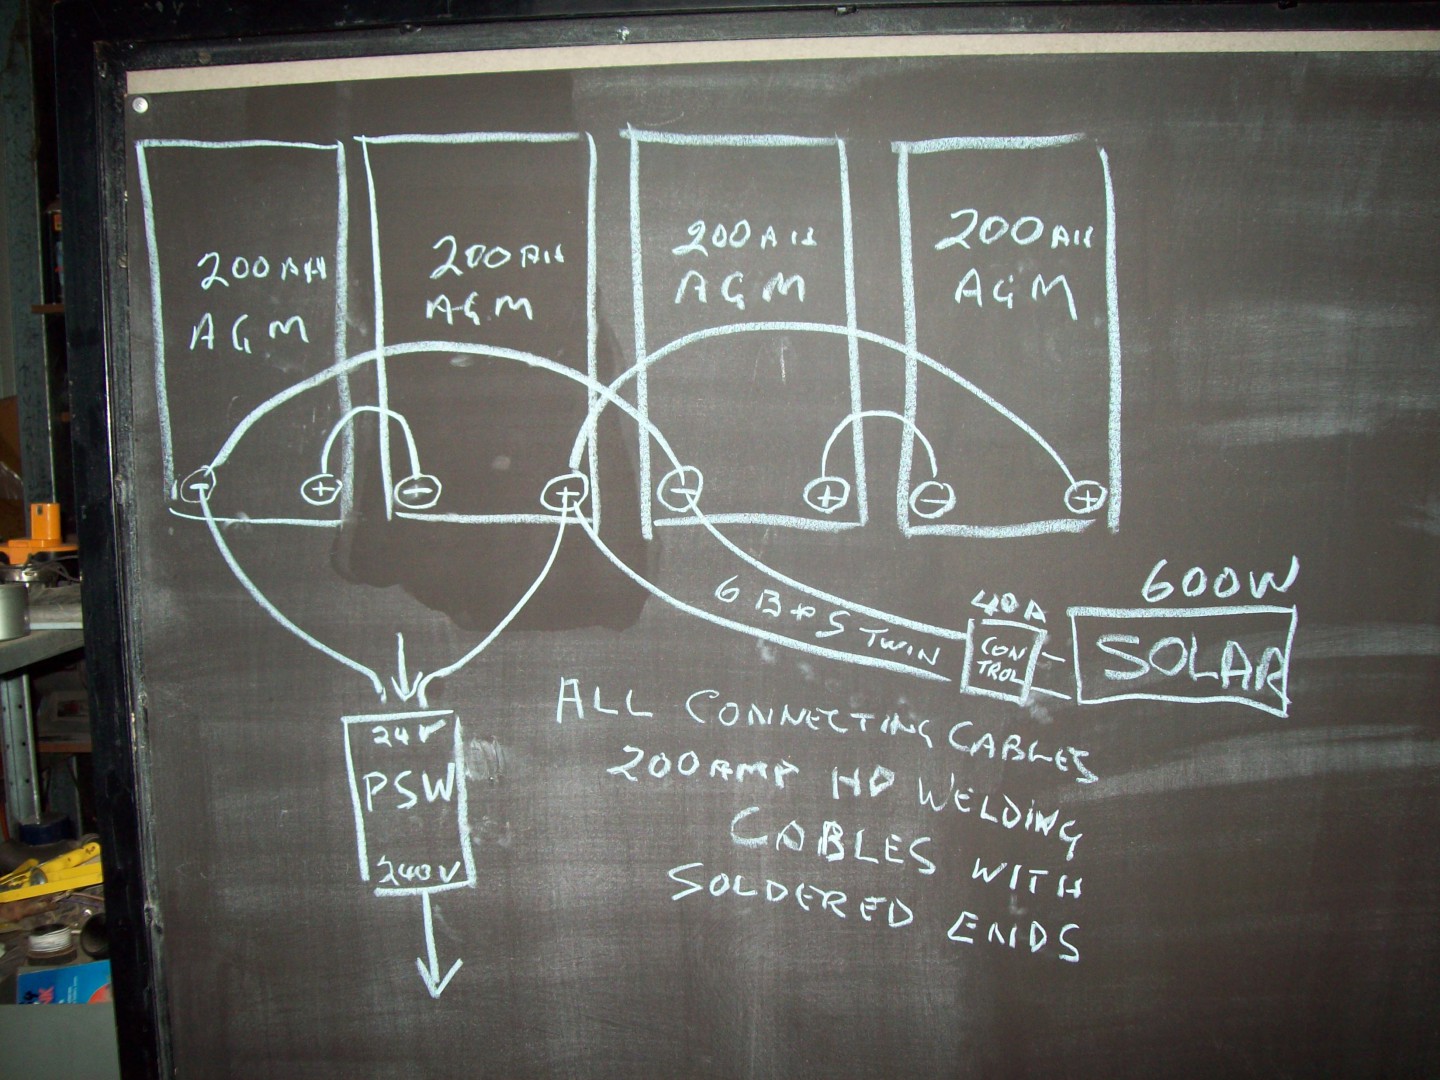 200AH
AGM
200AH
AGM
200AH
AGM
200AH
AGM
- + - + - + - +
600W
40A
SOLAR
CON
TROL
6 B+S TWIN
24V
PSW
240V
ALL CONNECTING CABLES
200AMP HD WELDING
CABLES WITH
SOLDERED ENDS